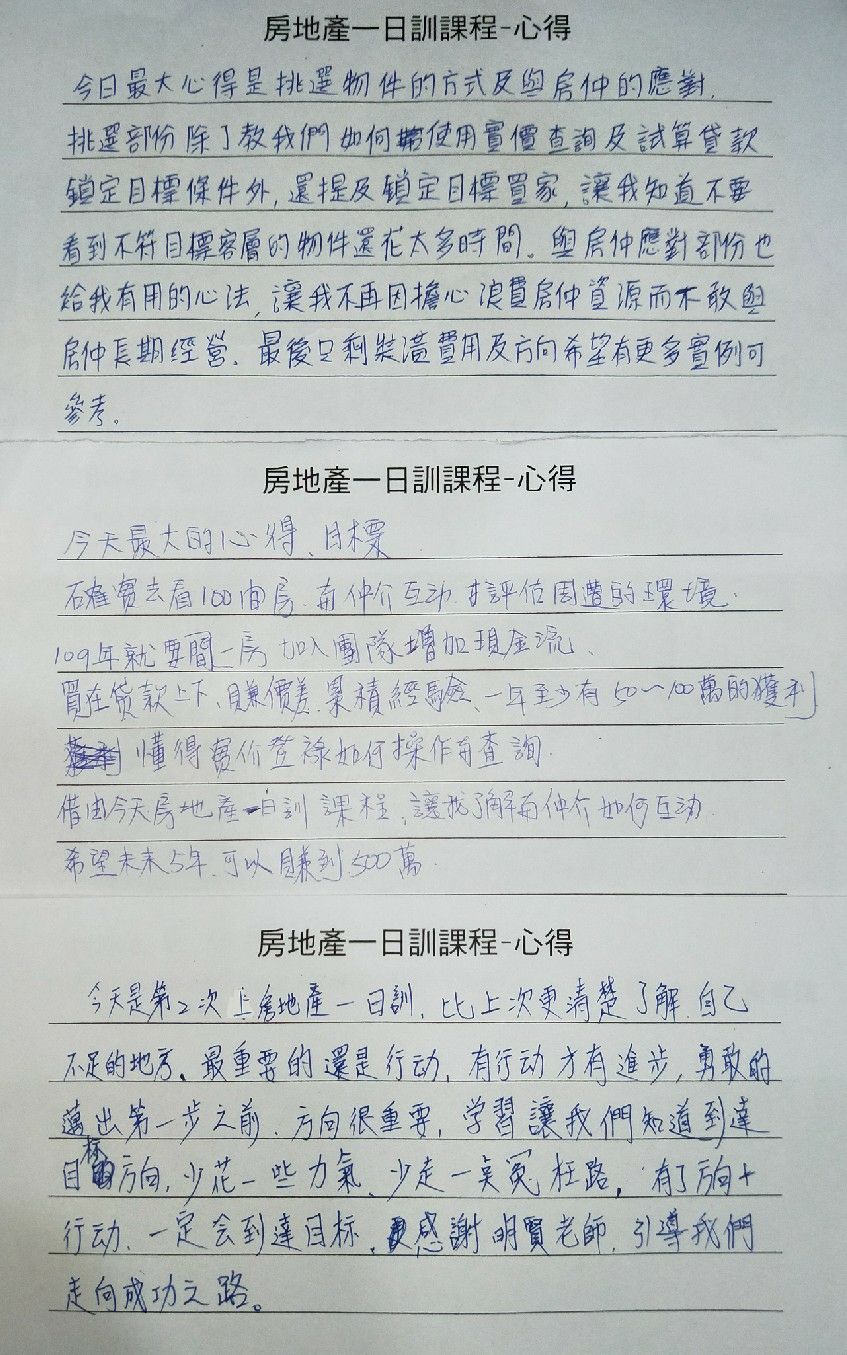 房地產一日訓課程-心得
今日最大心得是挑選物件的方式及與房仲的應對,
挑選部份除了教我們如何使用實價查詢及試算貸款
鎖定目標條件外,還提及鎖定目標買家,讓我知道不要
看到不符目標客層的物件還花太多時間。與房仲應對部份也
給我有用的心法,讓我不再因擔心浪費房仲資源而不敢與
房仲長期經營、最後只剩裝潢費用及方向希望有更多實例可
參考。
房地產一日訓課程-心得
今天最大的心得、目標
確實去看100間房、有仲介互动、才評估周遭的環境.
109年就要間一房 加入團隊增加現金流、
買在贷款上下、賺價差、累積經驗、一年至少有50~100萬的獲利
懂得實价登祿如何操作有查詢.
借由今天房地產一日訓課程,讓我了解有仲介如何互动.
希望未來5年,可以賺到500萬.
房地產一日訓課程-心得
今天是第2次上房地產一日訓,比上次更清楚了解自己
不足的地方、最重要的還是行动,有行动才有進步,勇敢的
邁出第一步之前、方向很重要,学習讓我們知道到達
目标方向,少花一些力氣、少走一点冤枉路,有了方向+
行动、一定会到達目标,感謝明賢老師,引導我們
走向成功之路。